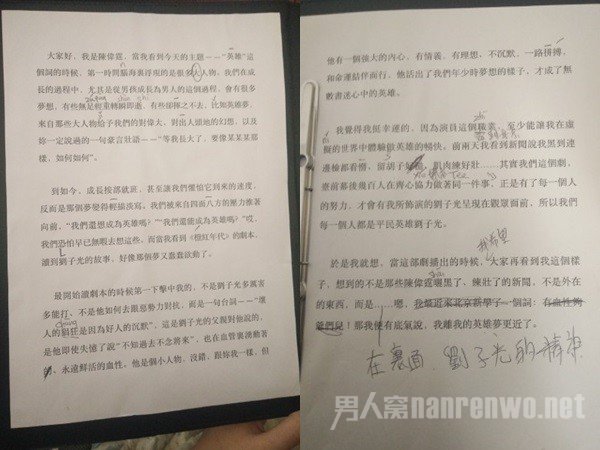 大家好，我是陳偉霆，當我看到今天的主題——“英雄”這
個詞的時候，第一時間腦海裏浮現的是很多人物。我們在成
長的過程中，尤其是從男孩成長為男人的這個過程，會有很多
夢想，有些無足輕重轉瞬即逝，有些卻揮之不去。比如英雄夢，
來自那些大人物給了我們的對偉大、對出人頭地的幻想，以及
妳一定說過的一句豪言壯語——“等我長大了，要像某某某那
樣，如何如何”。
到如今，成長挨部就班，甚至讓我們懼怕它到來的速度，
反而是那個夢變得輕描淡寫。我們被來自四面八方的壓力推著
向前，“我們還想成為英雄嗎？”“我們還能成為英雄嗎？”哎，
我們恐怕早已無暇去想這些。而當我看到《橙紅年代》的劇本，
讀到劉子光的故事，好像那個夢又蠢蠢欲動了。
最開始讀劇本的時候第一下擊中我的，不是劉子光多厲害
多能打、不是他如何去跟惡勢力對抗，而是一句台詞——“壞
人的猖狂是因為好人的沉默”，這是劉子光的父親對他說的，
是他即使失憶了說“不知過去不念將來”，也在血管裏湧動著
的、永遠鮮活的血性，他是個小人物，沒錯，跟妳我一樣，但
他有一個強大的內心，有情義，有理想，不沉默，一路拼搏，
和命運結伴而行，他活出了我們年少時夢想的樣子，才成了無
數書迷心中的英雄。
我覺得我挺幸運的，因為演員這個職業，至少能讓我在虛
擬的世界中體驗做英雄的暢快。前兩天我看到新聞說我黑到連
邊檢都看懵，留胡子 肌肉練好壯……其實我們這個劇，
臺前幕後幾百人在齊心協力做著同一件事，正是有了每一個人
的努力，才會有我所飾演的劉子光呈現在觀眾面前，所以我們
每一個人都是平民英雄劉子光。
我希望
於是我就想，當這部劇播出的時候，大家再看到我這個樣
子，想到的不是那些陳偉霆曬黑了、練壯了的新聞，不是外在
的東西，而是……嗯，我最近來北京新學了一個詞：有血性夠
爺們兒！那我便有底氣說，我離我的英雄夢更近了。
在裏面，劉子光的精神
男人窝nanrenwo.net